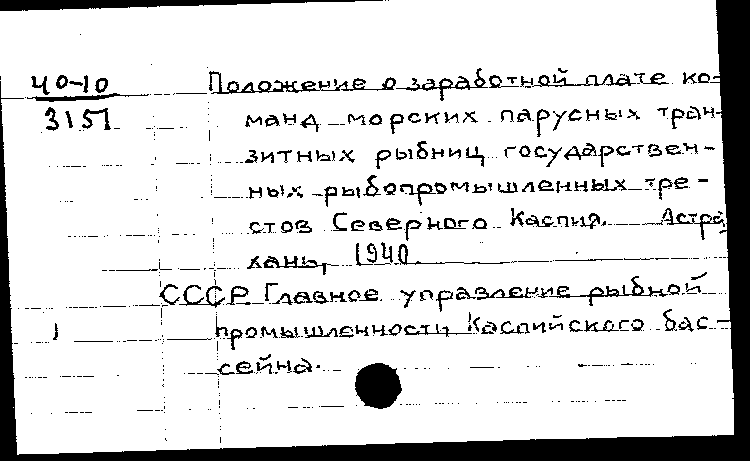 40-10
3151
Положение о заработной плате ко-
манд морских парусных тран-
зитных рыбниц государствен-
ных рыбопромышленных тре-
стов Северного Каспия. Астра-
хань, 1940.
СССР. Главное управление рыбной
1
промышленности Каспийского бас-
сейна.